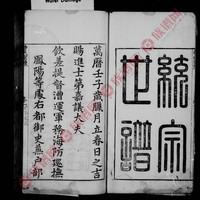 統宗
世譜
萬曆壬子歲臘月立春日之吉
賜進士第嘉議大夫
欽差提督漕運軍務海防巡撫
鳳陽等處右都御史無戶部
Water Damage